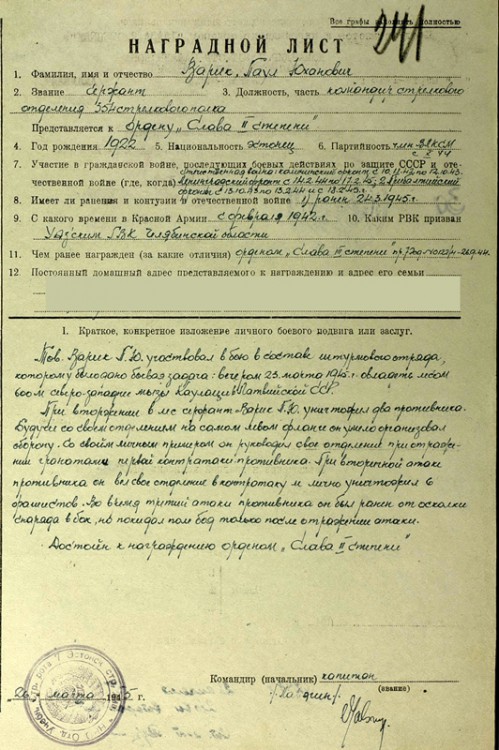 Все графы заполнять полностью
241
НАГРАДНОЙ ЛИСТ
1. Фамилия, имя и отчество Варик, Паул Юханович
2. Звание сержант 3. Должность, часть командир стрелкового
отделения 354 стрелкового полка
Представляется к ордену „Слава II степени"
4. Год рождения 1922 5. Национальность эстонец 6. Партийность член ВЛКСМ
7. Участие в гражданской войне, последующих боевых действиях по защите СССР и оте-
чественной войне (где, когда)
8. Имеет ли ранения и контузии в отечественной войне 1) ранен 24.3.1945 г.
9. С какого времени в Красной Армии с февраля 1942 г. 10. Каким РВК призван
РВК Челябинской области
11. Чем ранее награжден (за какие отличия) орденом „Слава III степени"
12. Постоянный домашний адрес представляемого к награждению и адрес его семьи
I. Краткое, конкретное изложение личного боевого подвига или заслуг.
Тов. Варик П.Ю. участвовал в бою в составе штурмового отряда,
которому было дано боевая задача: вечером 23. марта 1945 г. овладеть лесом
600 м северо-западнее мызы Каулаци Латвийской ССР.
При вторжении в лес сержант Варик П.Ю. уничтожил два противника.
Будучи со своим отделением на самом левом фланге он умело организовал
оборону. Со своим личным примером он руководил свое отделение при отраже-
нии гранатами первой контратаки противника. При вторичной атаки
противника он вел свое отделение в контратаку и лично уничтожил 6
фашистов. Во время третий атаки противника он был ранен от осколки
снаряда в бок, но покидал поле боя только после отражении атаки.
Достоин к награждению орденом „Слава II степени"
26 марта 1945 г.
Командир (начальник) капитан
(звание)